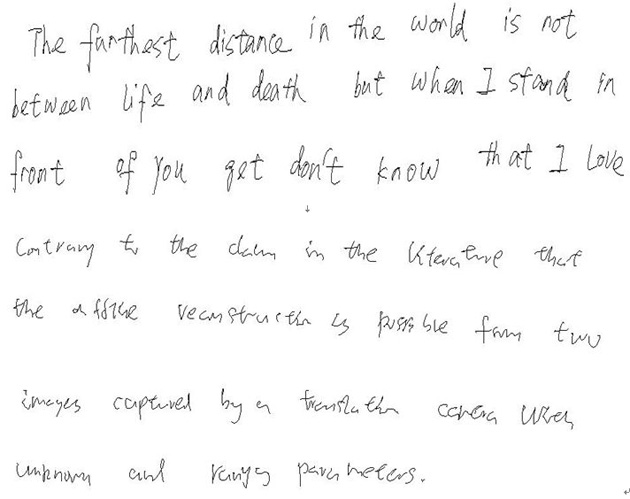 The farthest distance in the world is not
between life and death but when I stand in
front of you get don't know that I Love
Contrary to the claim in the literature that
the affine reconstruction is possible from two
images captured by a translation camera with
unknown and varying parameters.